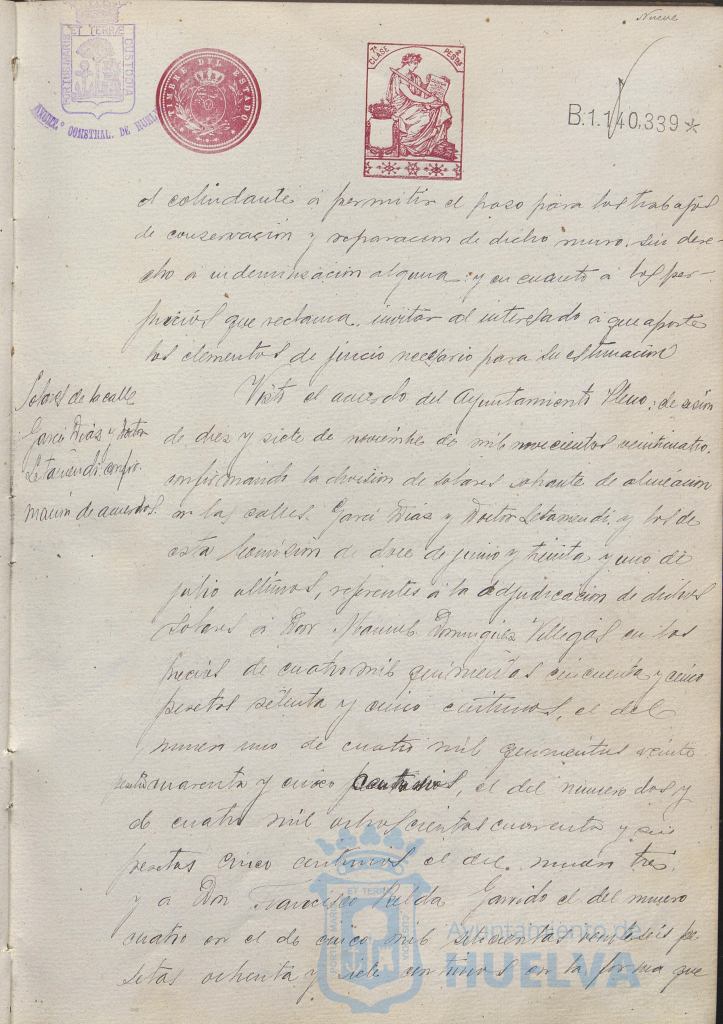 Nueve
PORTUS MARIS ET TERRÆ CUSTODIA
TIMBRE DEL ESTADO
7ª CLASE 2 PESTAS
CONSTNAL. DE HUELVA
B.1.140,339*
el colindante á permitir el paso para los trabajos
de conservación y reparacion de dicho muro, sin dere-
cho á indemnización alguna: y en cuanto á los per-
juicios que reclama, invitar al interesado a que aporte
los elementos de juicio necesario para su estimación
Solares de la calle
Garci Díaz y Doctor
Letamendi: confir-
mación de acuerdos.
Visto el acuerdo del Ayuntamiento Pleno, de sesión
de diez y siete de noviembre de mil novecientos veinticuatro,
confirmando la division de solares sobrante de alineación
en las calles Garci Díaz y Doctor Letamendi, y los de
esta Comisión de doce de junio y treinta y uno de
julio ultimos, referentes á la adjudicación de dichos
solares á Don Manuel Dominguez Villegas en los
precios de cuatro mil quinientas cincuenta y cinco
pesetas setenta y cinco centimos, el del
numero uno de cuatro mil quinientas veinte
pesetas cuarenta y cinco centimos, el del número dos y
de cuatro mil ochocientas cuarenta y seis
pesetas cinco centimos el del numero tres
y a Don Francisco Garrido el del numero
cuatro en el de cinco mil seiscientas veintiseis pe-
setas ochenta y siete centimos en la forma que
Ayuntamiento de
HUELVA